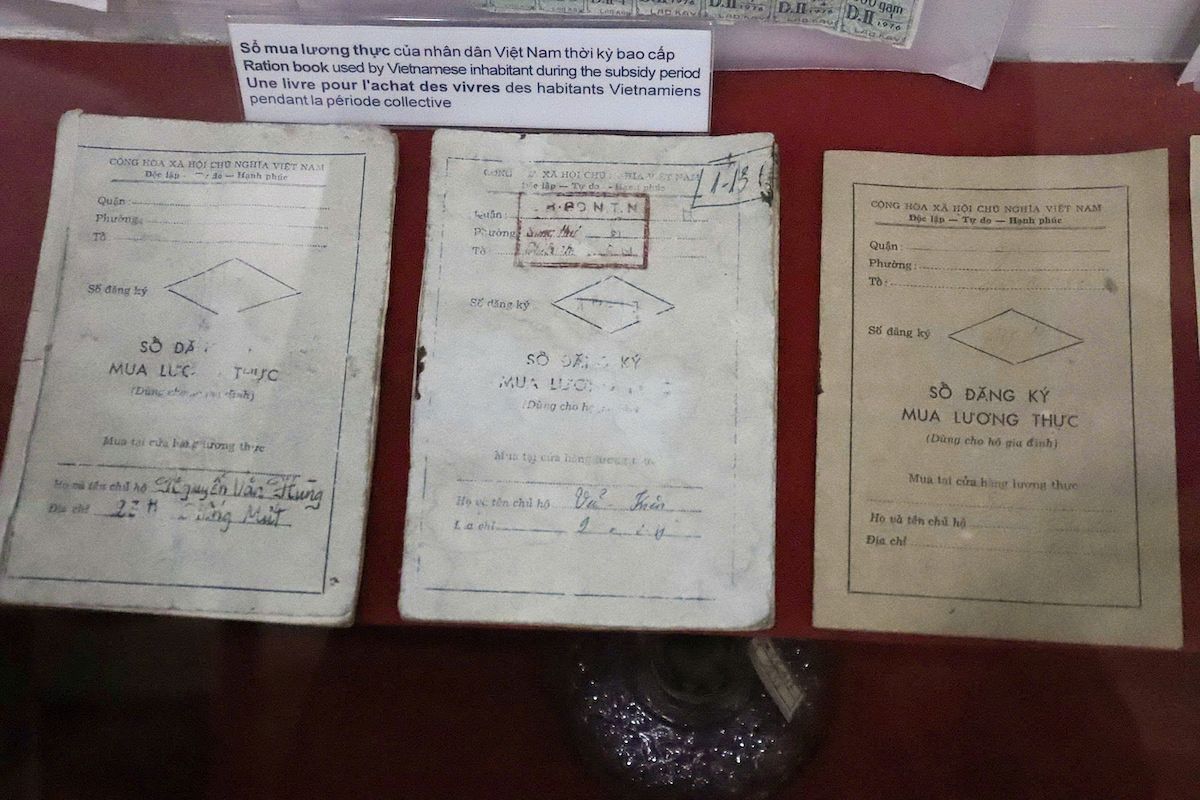 D.II 1976
LAO KAY
LAO KAY
D.II 1976
Sổ mua lương thực của nhân dân Việt Nam thời kỳ bao cấp
Ration book used by Vietnamese inhabitant during the subsidy period
Une livre pour l'achat des vivres des habitants Vietnamiens
pendant la période collective
CỘNG HÒA XÃ HỘI CHỦ NGHĨA VIỆT NAM
Độc lập - Tự do — Hạnh phúc
Quận:
Phường:
Tổ
Số đăng ký
SỔ
MUA THỰC
Mua tại cửa hàng lương thực
Họ và tên chủ hộ Nguyễn Văn Hùng
Địa chỉ
XÃ HỘI CHỦ NGHĨA VIỆT NAM
Độc lập — Tự do - Hạnh phúc
1-13
Quận:
Phường
Tổ
Số đăng ký
SỔ ĐĂNG KÝ
MUA
(Dùng cho
Mua tại cửa hàng lương thực
Họ và tên chủ hộ
CỘNG HÒA XÃ HỘI CHỦ NGHĨA VIỆT NAM
Độc lập — Tự do — Hạnh phúc
Quận:
Phường:
Tổ:
Số đăng ký
SỔ ĐĂNG KÝ
MUA LƯƠNG THỰC
(Dùng cho hộ gia đình)
Mua tại cửa hàng lương thực
Họ và tên chủ hộ
Địa chỉ